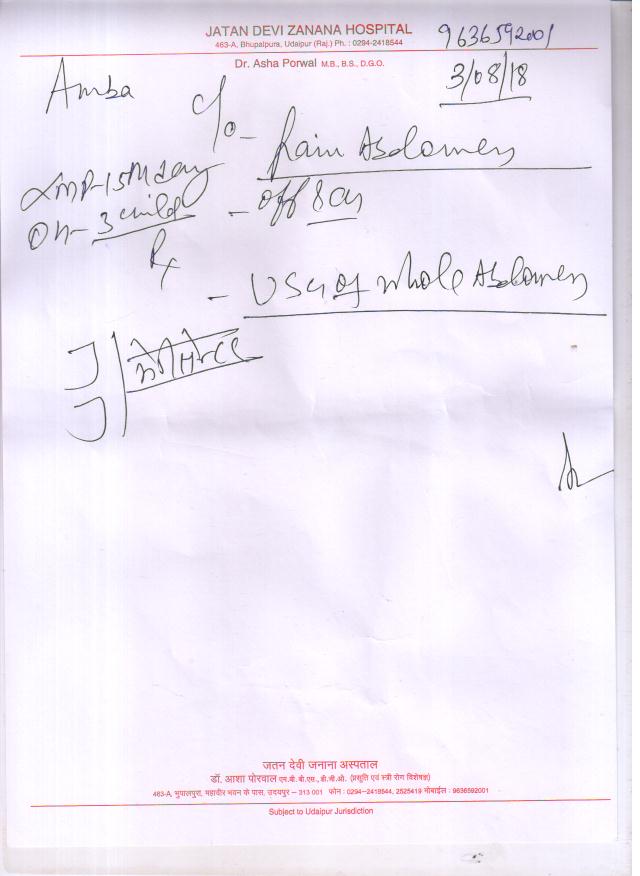 JATAN DEVI ZANANA HOSPITAL
463-A, Bhupalpura, Udaipur (Raj.) Ph. : 0294-2418544
9636592001
Dr. Asha Porwal M.B., B.S., D.G.O.
3/08/18
Amba
C/o - Pain Abdomen
LMP-15th day
OH- 3 child
- off &
Rx
- USG of whole Abdomen
जतन देवी जनाना अस्पताल
डॉ. आशा पोरवाल एम.बी.बी.एस., डी.जी.ओ. (प्रसूति एवं स्त्री रोग विशेषज्ञ)
463-A, भुपालपुरा, महावीर भवन के पास, उदयपुर – 313 001 फोन : 0294-2418544, 2525419 मोबाईल : 9636592001
Subject to Udaipur Jurisdiction